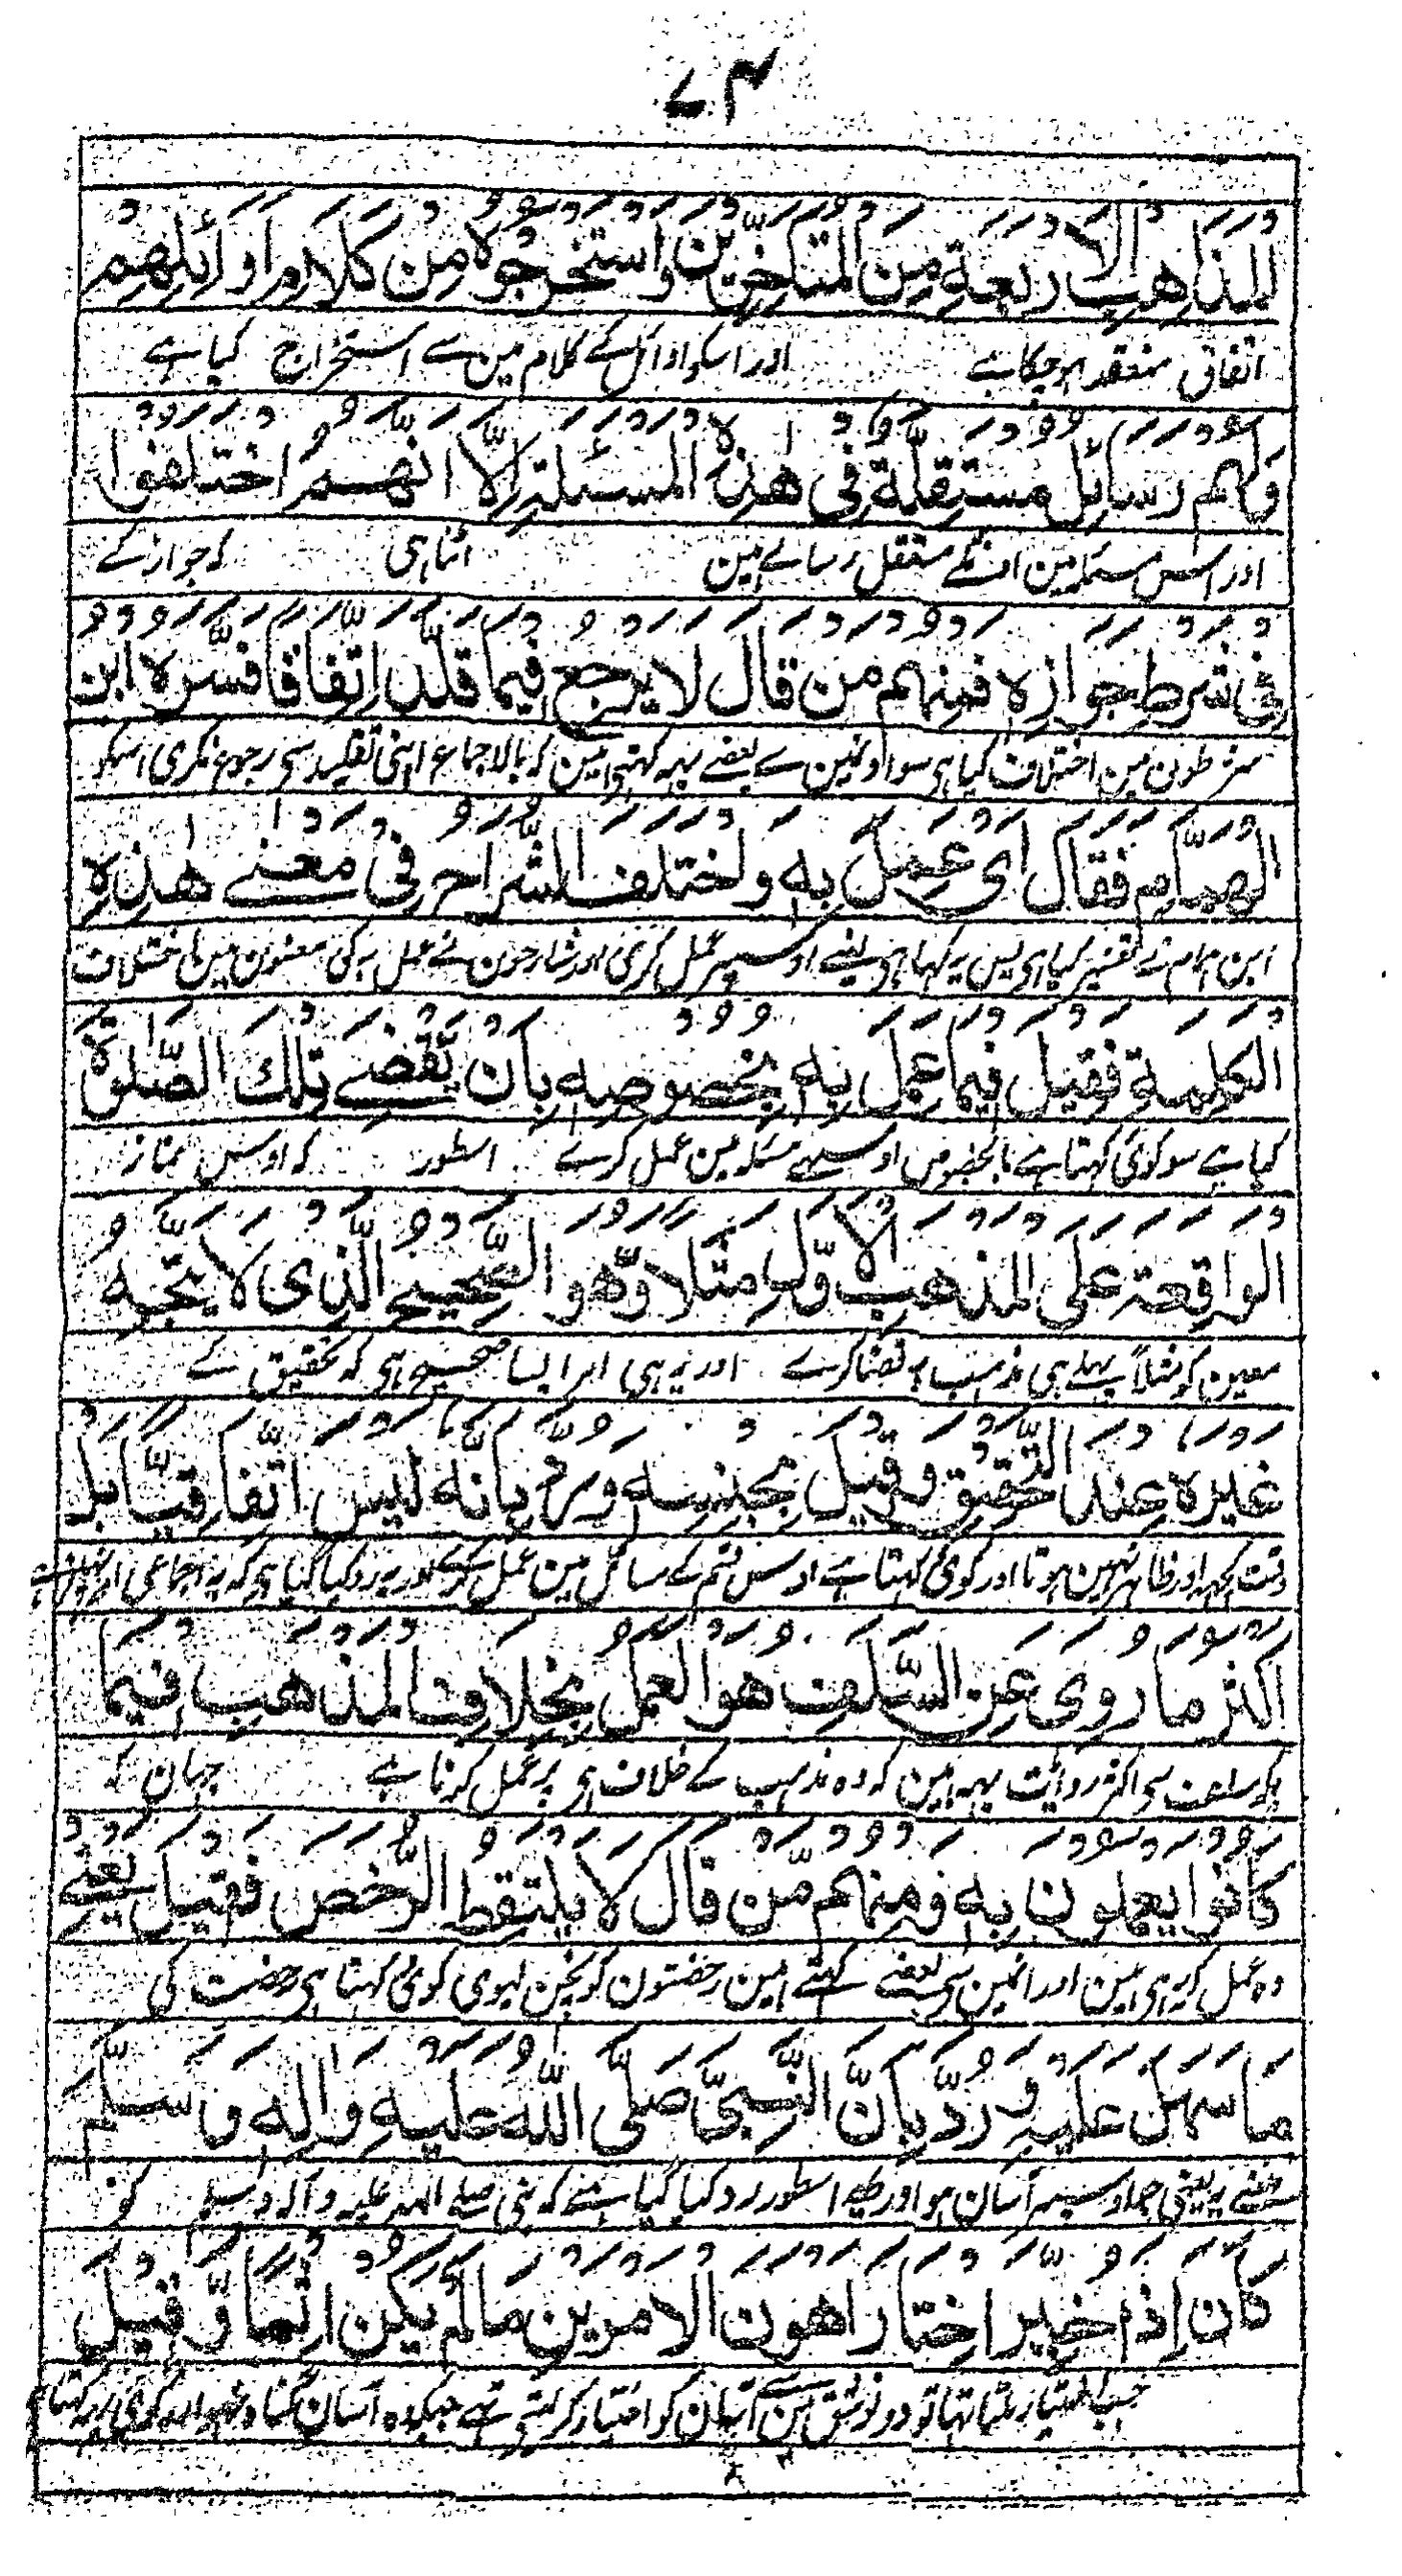 ٧٤
لِلْمَذَاهِبِ الْاَرْبَعَةِ مِنَ الْمُتَاَخِّرِيْنَ وَاسْتَخْرَجُوْهُ مِنْ كَلَامِ اَوَائِلِهِمْ
اتفاق منعقد ہوچکا ہے اور اسکو اوائل کے کلام مین سے استخراج کیا ہے
وَلَهُمْ رَسَائِلُ مُسْتَقِلَّةٌ فِيْ هٰذِهِ الْمَسْئَلَةِ اِلَّا اَنَّهُمْ اخْتَلَفُوْا
اور اس مسئلہ مین انکے مستقل رسالے ہین اتنا ہی کہ جواز کے
فِيْ شَرْطِ جَوَازِهٖ فَمِنْهُمْ مَنْ قَالَ لَا يَرْجِعُ فِيْمَا قَلَّدَ اِتِّفَاقًا فَسَّرَهُ ابْنُ
شرطون مین اختلاف کیا ہی سو اونمین سے بعضے یہہ کہتی ہین کہ بالاجماع اپنی تقلید سی رجوع نکری اسکو
الْهُمَّامِ فَقَالَ اَيْ عَمِلَ بِهٖ وَاخْتَلَفَ الشُّرَّاحُ فِيْ مَعْنٰے هٰذِهِ
ابن ہمام نے تفسیر کیا ہی پس یہ کہا ہی یعنے اوسپر عمل کری اور شارحون نے عمل بہ کی معنون مین اختلاف
الْكَلِمَةِ فَقِيْلَ فِيْمَا عَمِلَ بِهٖ بِخُصُوْصِهٖ بِاَنْ يَّقْضِےَ تِلْكَ الصَّلٰوةَ
کیا ہے سو کوئی کہتا ہے بالخصوص اوسیہی مسئلہ مین عمل کرے اسطور کہ اوس نماز
الْوَاقِعَةَ عَلَى الْمَذْهَبِ الْاَوَّلِ مَثَلًا وَّهُوَ الصَّحِيْحُ الَّذِيْ لَا يَتَّجِهُ
معین کو مثلاً پہلے ہی مذہب پہ قضا کرے اور یہ ہی ایسا صحیح ہی کہ تحقیق کے
غَيْرُهٗ عِنْدَ التَّحْقِيْقِ وَقِيْلَ بِجِنْسِهٖ وَرُدَّ بِاَنَّهٗ لَيْسَ اِتِّفَاقِيًّا بَلْ
وقت کچہہ اور ظاہر نہین ہوتا اور کوئی کہتا ہے اوس قسم کے مسائل مین عمل کرے اور یہ رد کیا گیا ہی کہ یہ اجماعی
اَكْثَرُ مَا رُوِيَ عَنِ السَّلَفِ هُوَ الْعَمَلُ بِخِلَافِ الْمَذْهَبِ فِيْمَا
بلکہ سلف سی اکثر روایت یہہ ہین کہ وہ مذہب کے خلاف ہی پر عمل کرنا ہے جہان کہ
كَانُوْا يَعْمَلُوْنَ بِهٖ وَمِنْهُمْ مَّنْ قَالَ لَا يَلْتَقِطُ الرُّخَصَ فَقِيْلَ يَعْنِيْ
وہ عمل کر رہی ہین اور انمین سی بعضے کہتے ہین رخصتون کو نچن لیوی کوئی کہتا ہی رخصت کی
مَا سَهُلَ عَلَيْهِ وَرُدَّ بِاَنَّ النَّبِيَّ صَلَّى اللّٰهُ عَلَيْهِ وَاٰلِهٖ وَسَلَّمَ
معنے یہ یعنی جو اوسپہر آسان ہو اور یہہ اسطور رد کیا گیا ہے کہ نبی صلے اللہ علیہ وآلہ وسلم کو
كَانَ اِذَا خُيِّرَ اخْتَارَ اَهْوَنَ الْاَمْرَيْنِ مَا لَمْ يَكُنْ اِثْمًا وَّقِيْلَ
جب اختیار ملتا تہا تو دونو شق مین سے آسان کو اختیار کر لیتے تہے جبکہ وہ آسان گناہ نہو اور کوئی یہہ کہتا ہے